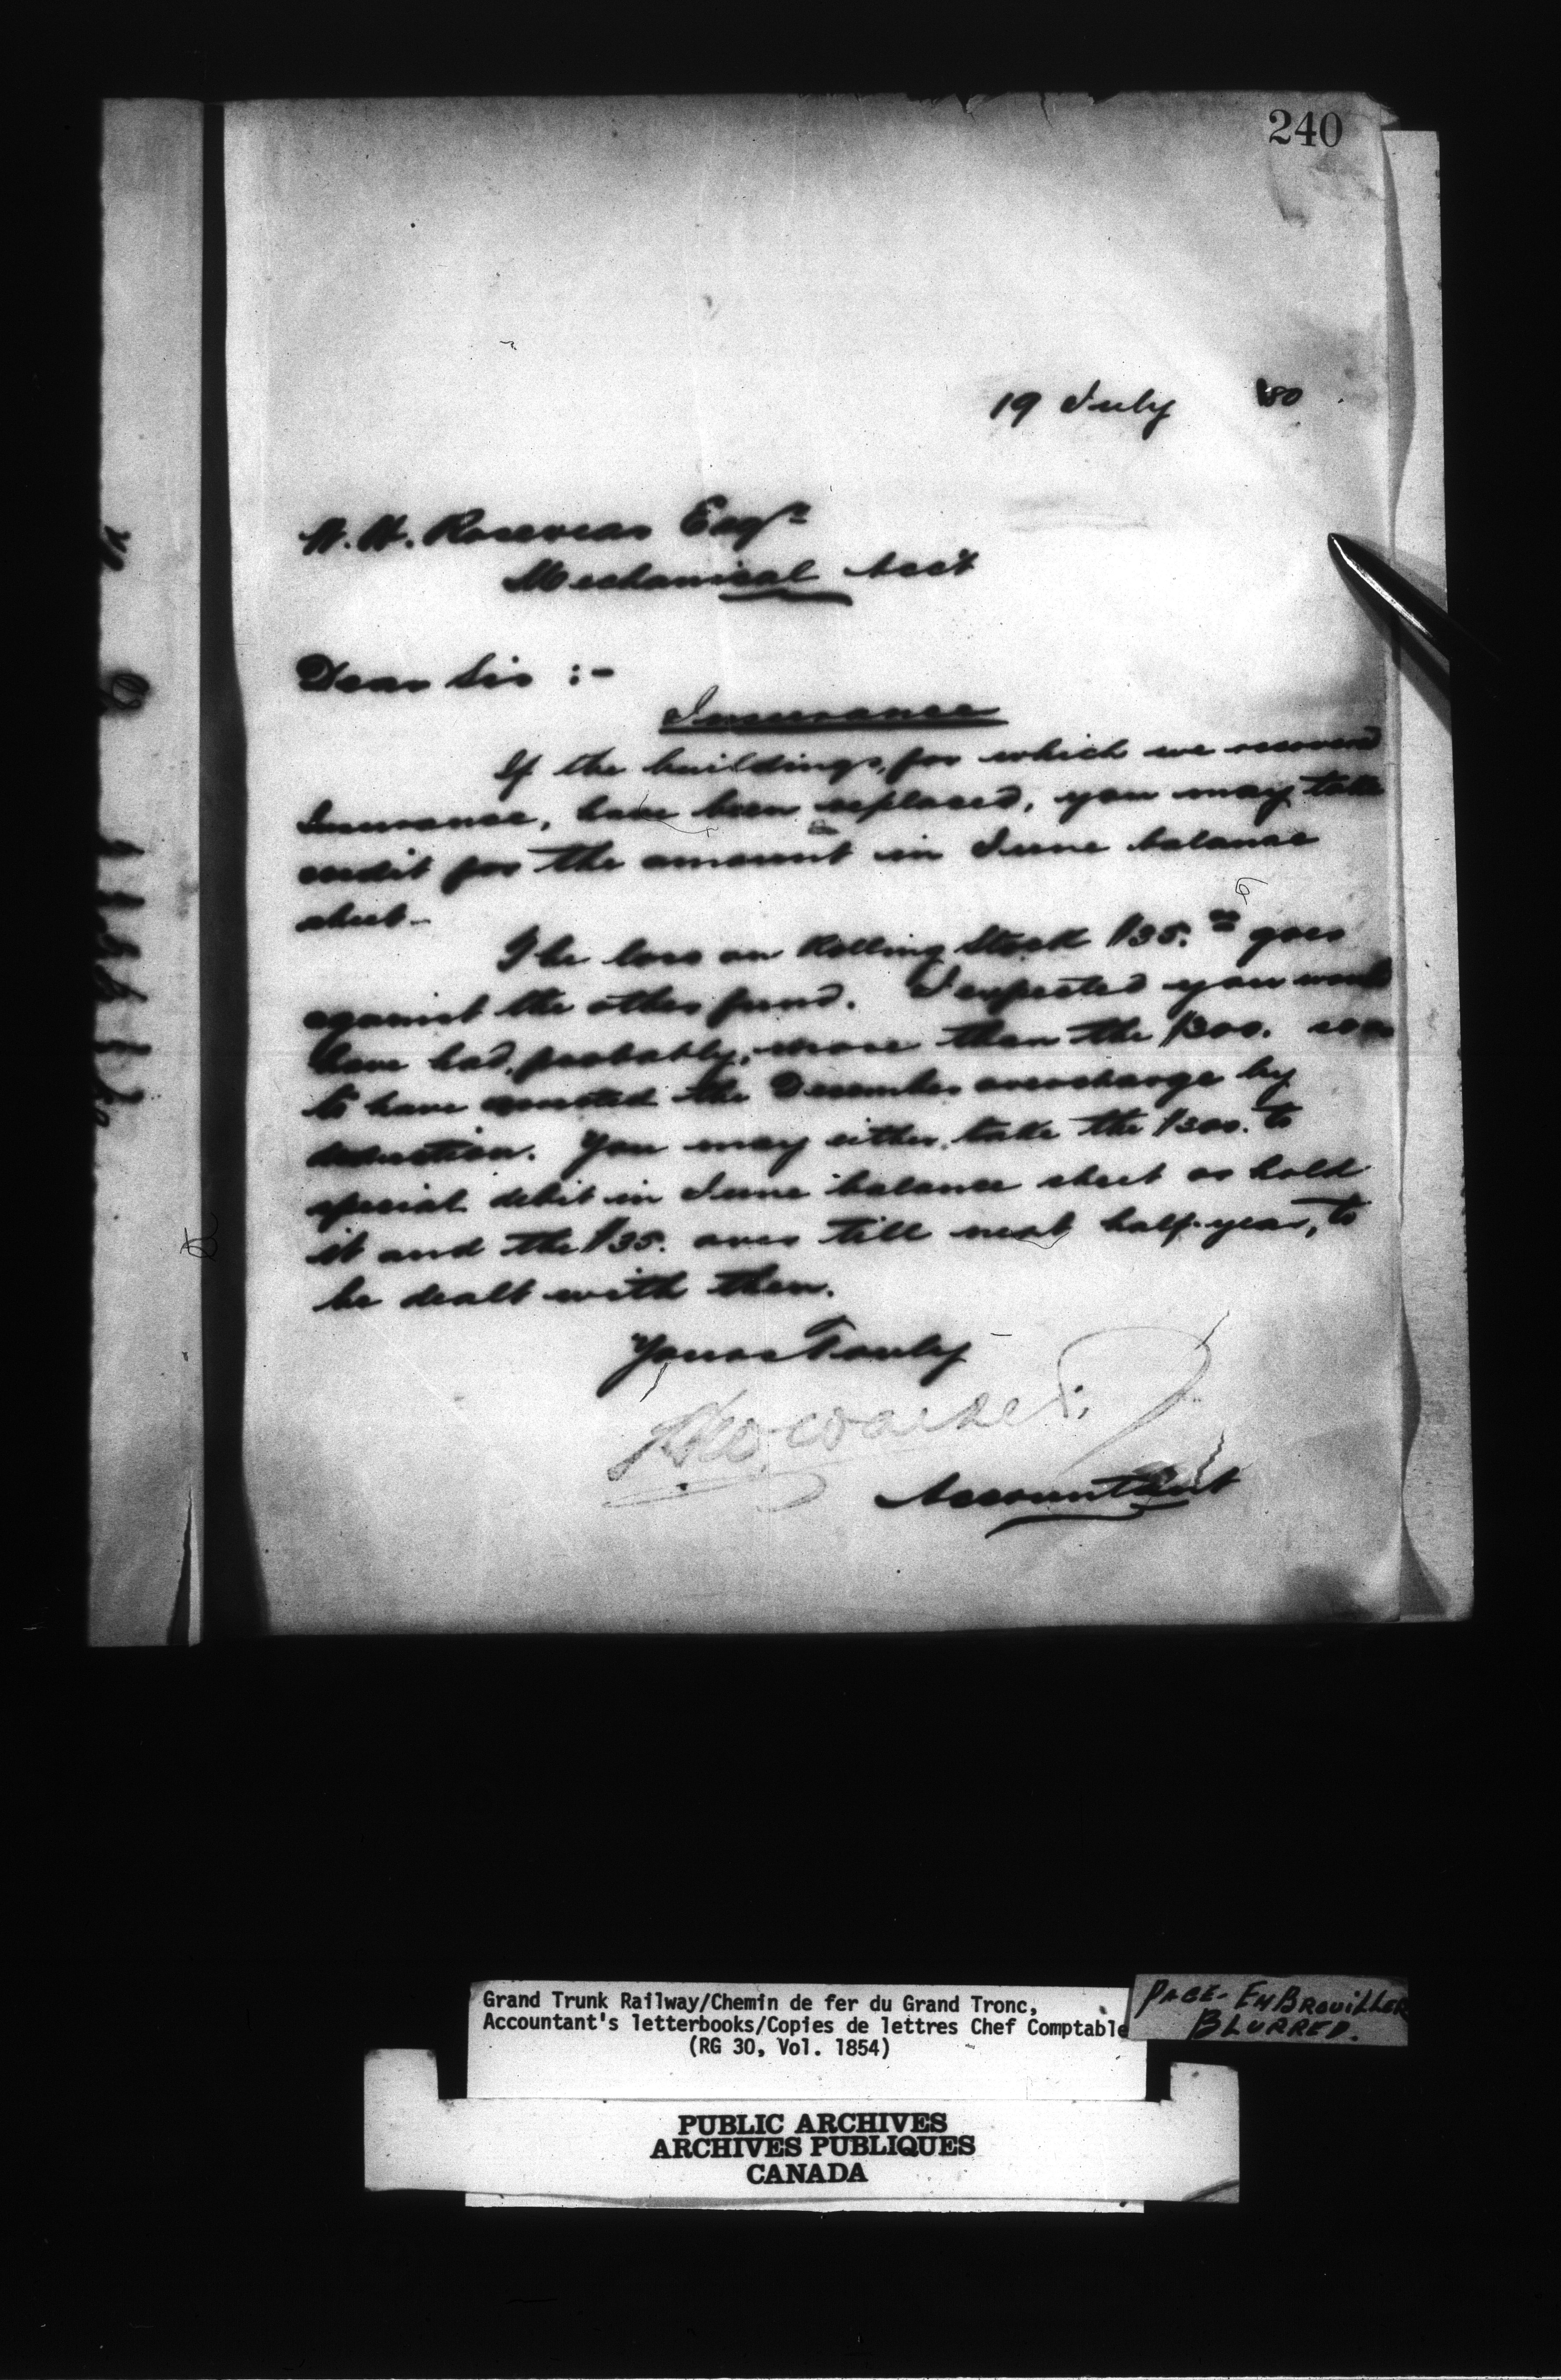 240
19 July 80
W. H. Rosevear Esqr
Mechanical Acct
Dear Sir :-
Insurance
If the buildings, for which we recovered
Insurance, have been replaced, you may take
credit for the amount in June balance
sheet.
The loss on Rolling Stock $35.00 goes
against the other fund. I expected you would
have had, probably, more than the $300.
to have corrected the December overcharge by
deduction. You may either take the $300. to
special debit in June balance sheet or hold
it and the $35. over till next half-year, to
be dealt with then.
Yours Truly
Accountant
Grand Trunk Railway/Chemin de fer du Grand Tronc,
Accountant's letterbooks/Copies de lettres Chef Comptable
(RG 30, Vol. 1854)
PAGE- EMBROUILLER
BLURRED.
PUBLIC ARCHIVES
ARCHIVES PUBLIQUES
CANADA